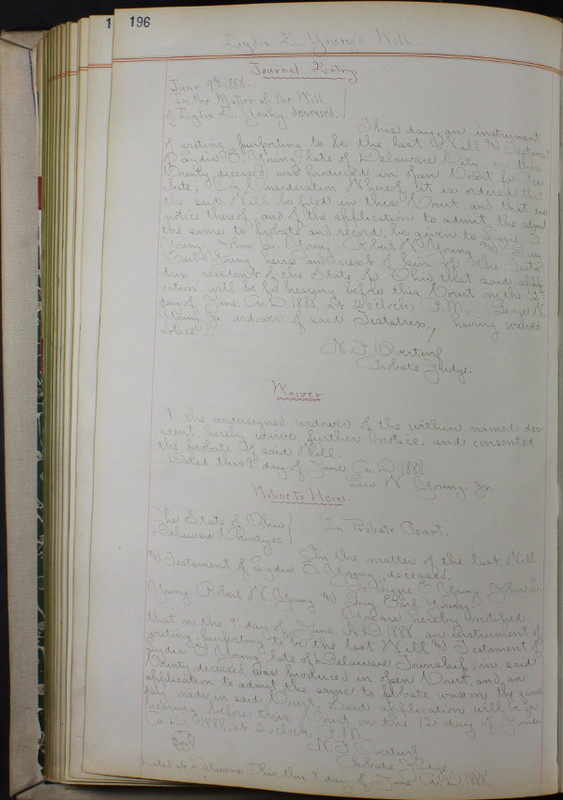 196
Lydia E. Young's Will.
Journal Entry.
June 9th 1888.
In the Matter of the Will
of Lydia E. Young deceased,
This day, an instrument
of writing purporting to be the last Will & Testament
of Lydia E. Young late of Delaware City in this
County deceased was produced in open Court for Pro-
bate; On Consideration Whereof, it is ordered that
the said Will be filed in this Court, and that
notice thereof, and of the application to admit
the same to probate and record, be given to E
Young, John S. Young Robert N. Young and Guy
Earl Young heirs and next of kin of the Testa-
trix resident of the State of Ohio that said appli-
cation will be for hearing before this Court on the
day of June, A.D. 1888 at 2 o'clock P.M., George W.
Young Jr. widower of said Testatrix, having waived
notice.
N. F. Overturf
Probate Judge.
Waiver
I, the undersigned, widower of the within named dec-
edent, hereby waive further notice, and consented
the probate of said Will.
Dated this 9 day of June A.D. 1888
Geo. W. Young, Jr.
Notice to Heirs.
The State of Ohio
Delaware County ss In Probate Court.
In the matter of the last Will
& Testament of Lydia E. Young, deceased.
E. Young, John S.
Young Robert N. Young & Guy Earl Young:
You are hereby notified
that on the 9 day of June A.D. 1888, an instrument of
writing, purporting to be the last Will & Testament of
Lydia E. Young, late of Delaware Township, in said
County, deceased, was produced in open Court, and, an
application to admit the same to probate was on the same
day made in said Court. Said application will be for
hearing before this Court on the 12 day of June
A.D. 1888, at 2 o'clock P.M.
N. F. Overturf
Seal Probate Judge
Dated at Delaware Ohio this 9 day of June A.D. 1888